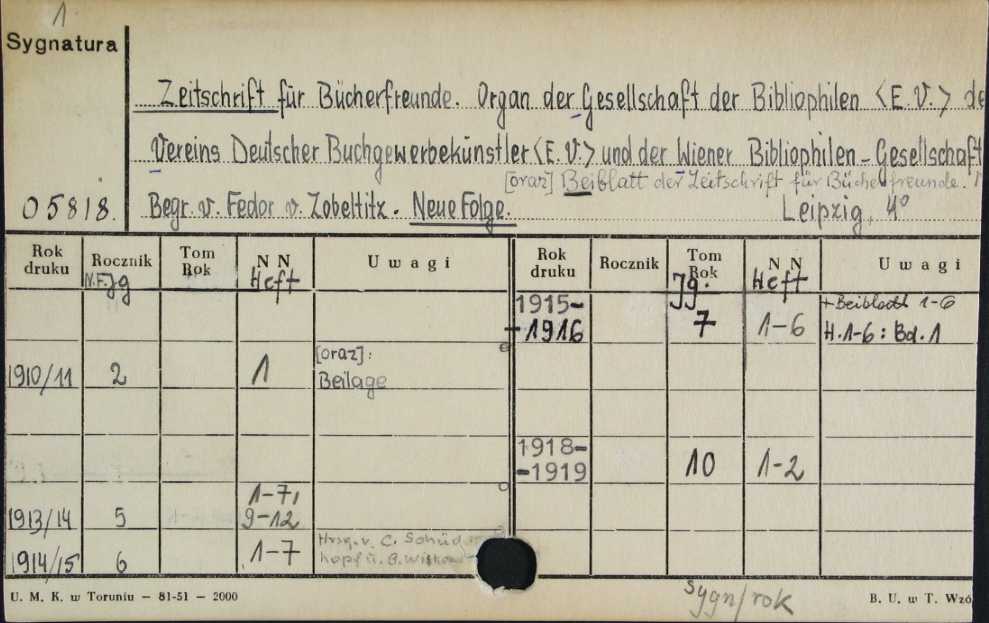 1
Sygnatura
Zeitschrift für Bücherfreunde. Organ der Gesellschaft der Bibliophilen <E.V.> de
Vereins Deutscher Buchgewerbekünstler <E.V.> und der Wiener Bibliophilen-Gesellschaft
[oraz] Beiblatt der Zeitschrift für Bücherfreunde.
05818. Begr. v. Fedor v. Zobeltitz. Neue Folge. Leipzig, 4°
Rok druku Rocznik Tom Rok N N Uwagi Rok druku Rocznik Tom Rok N N Uwagi
N.F. Jg Heft Jg. Heft
1915- + Beiblatt 1-6
+1916 7 1-6 H.1-6: Bd. 1
[oraz]:
1910/11 2 1 Beilage
1918-
-1919 10 1-2
1-7,
1913/14 5 9-12
1914/15 6 1-7 Hrsg. v. C. Schüd
kopf u. G.
U. M. K. w Toruniu — 81-51 — 2000
sygn/rok
B. U. w T. Wzó